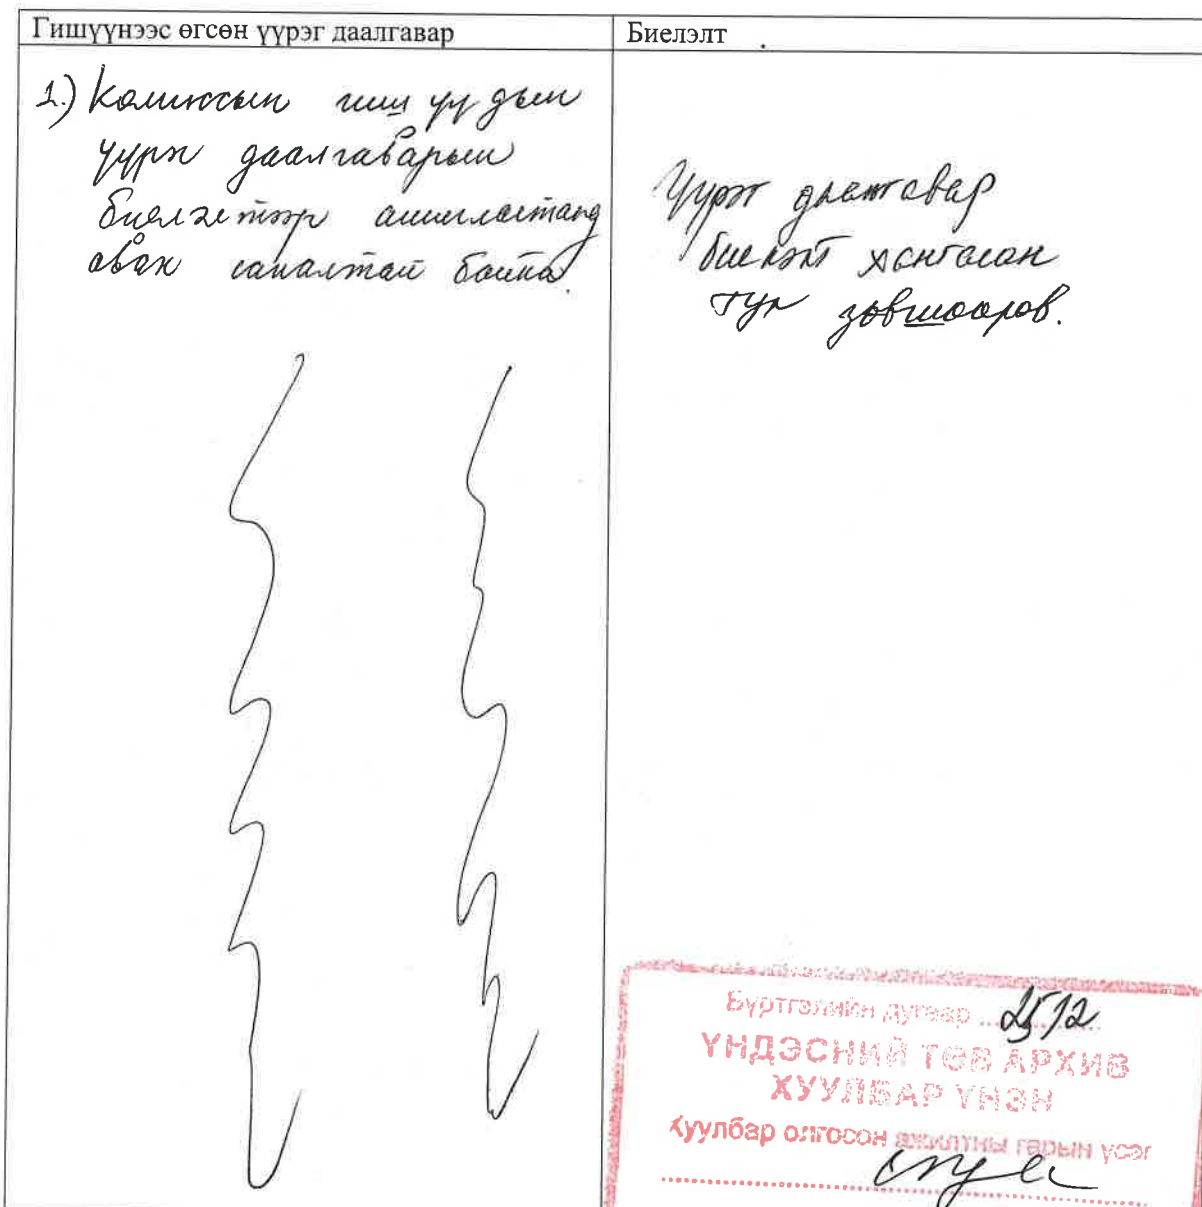 Гишүүнээс өгсөн үүрэг даалгавар
Биелэлт
1.) Комиссын гишүүдын
үүрэг даалгаварын
биелэлтээр ашиглалтанд
авах саналтай байна.
Үүрэг даалгавар
биелэлт хангасан
тул зөвшөөров.
Бүртгэлийн дугаар 2512
ҮНДЭСНИЙ ТӨВ АРХИВ
ХУУЛБАР ҮНЭН
Хуулбар олгосон ажилтны гарын үсэг